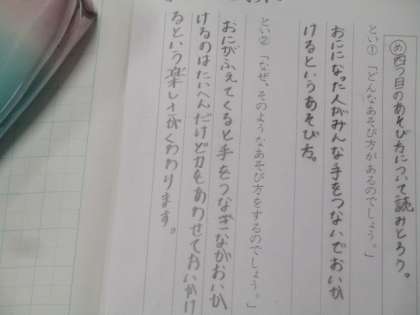 め四つ目のあそび方について読みとろう。
とい①「どんなあそび方があるのでしょう。」
おにになった人がみんな手をつないでおいか
けるというあそび方。
とい②「なぜ、そのようなあそび方をするのでしょう。」
おにがふえてくると手をつなぎながおいか
けるのはたいへんだけど力をあわせておいかけ
るという楽しさがくわわります。